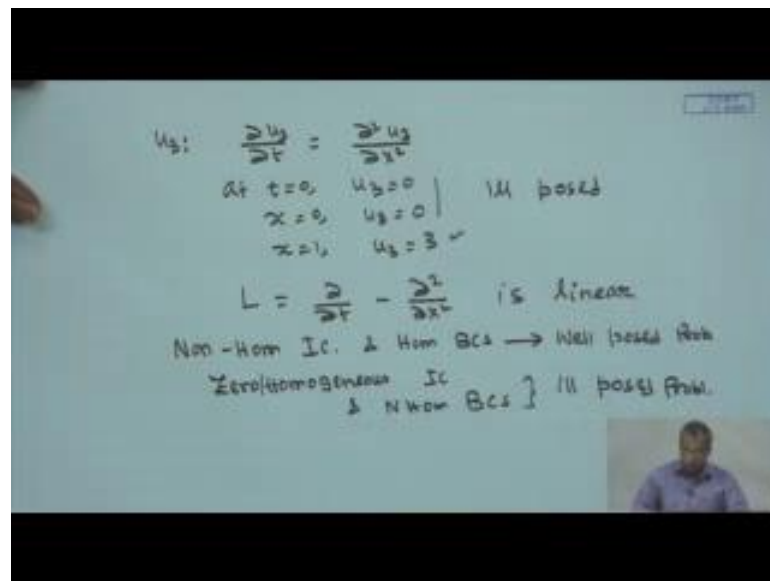 u₃: ∂u₃/∂t = ∂²u₃/∂x²
at t=0, u₃=0 | ill posed
x=0, u₃=0
x=1, u₃=3 ✓
L = ∂/∂t - ∂²/∂x² is linear
Non-Hom IC. & Hom BCs → Well posed Prob
Zero/Homogeneous IC
& NHom BCs } ill posed Prob.